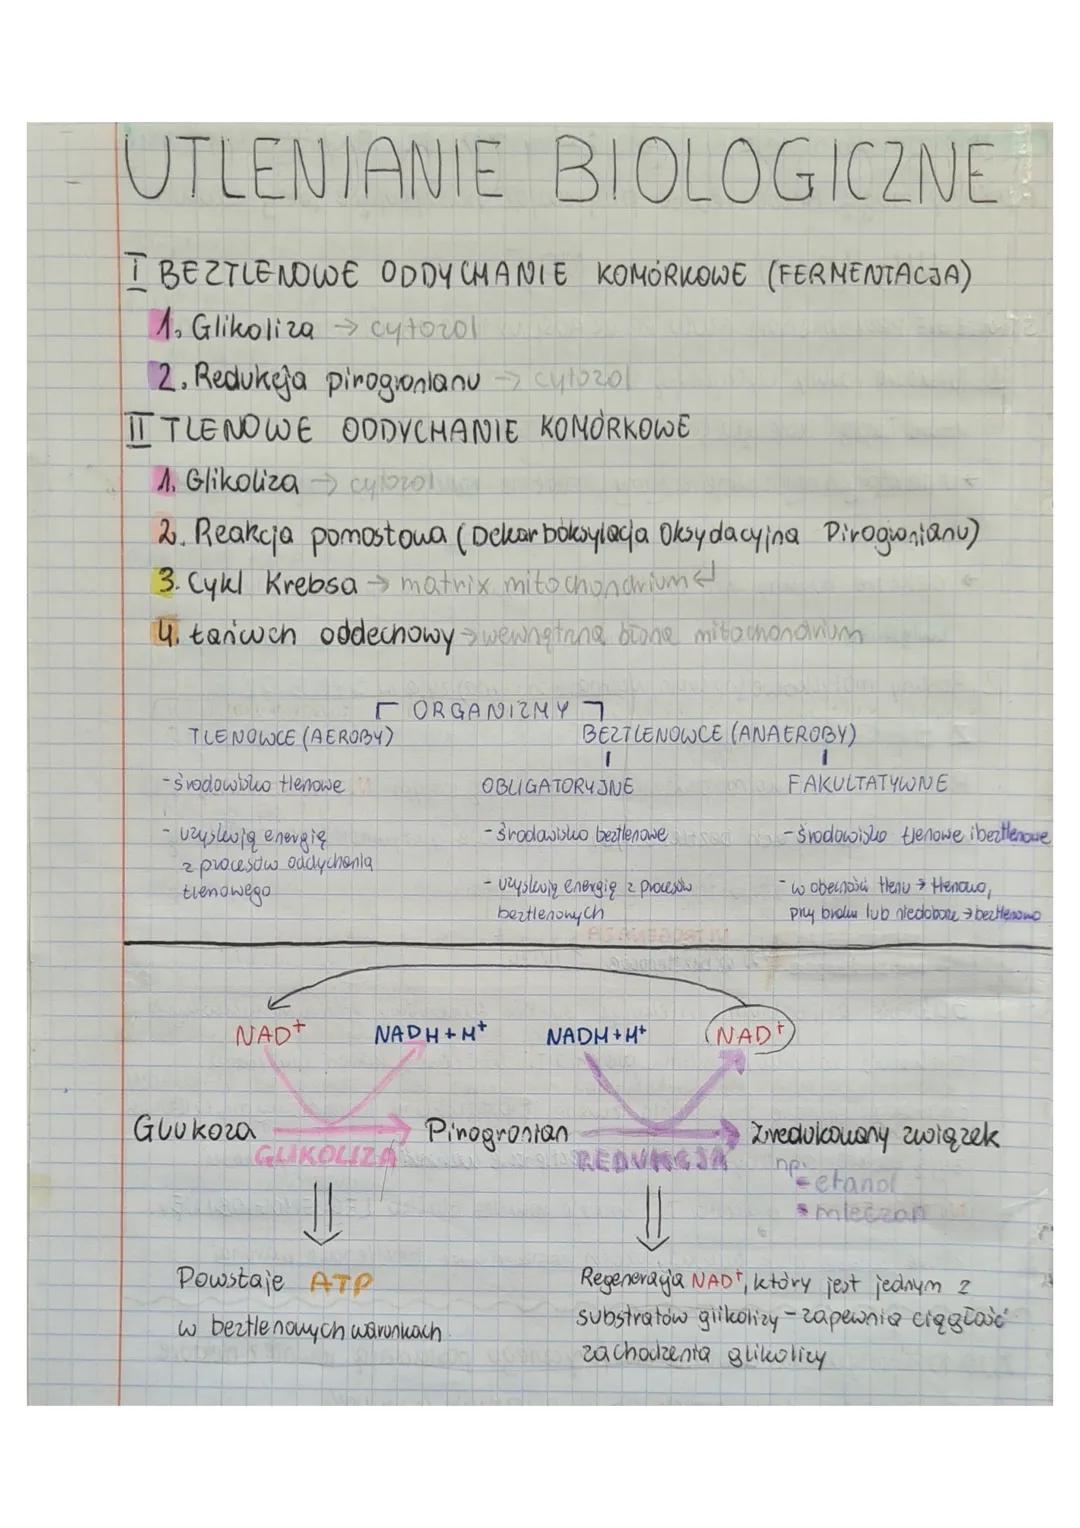 UTLENIANIE BIOLOGICZNE
I BEZTLENOWE ODDYCHANIE KOMÓRKOWE (FERMENTACJA)
1. Glikoliza → cytozol
2. Redukcja pirogronianu → cytozol
II TLENOWE ODDYCHANIE KOMÓRKOWE
1. Glikoliza → cytozol
2. Reakcja pomostowa (Dekarboksylacja Oksydacyjna Pirogronianu)
3. Cykl Krebsa → matrix mitochondrium ↵
4. Łańcuch oddechowy → wewnętrzna błona mitochondrium
ORGANIZMY
TLENOWCE (AEROBY)
BEZTLENOWCE (ANAEROBY)
- środowisko tlenowe
- uzyskują energię
z procesów oddychania
tlenowego
OBLIGATORYJNE
- środowisko beztlenowe
- uzyskują energię z procesów
beztlenowych
FAKULTATYWNE
- środowisko tlenowe i beztlenowe
- w obecności tlenu → tlenowo,
przy braku lub niedoborze → beztlenowo
NAD⁺ NADH+H⁺ NADH+H⁺ NAD⁺
Glukoza → Pirogronian → Zredukowany związek
GLIKOLIZA REDUKCJA np.
- etanol
- mleczan
Powstaje ATP
w beztlenowych warunkach
Regeneracja NAD⁺, który jest jednym z
substratów glikolizy - zapewnia ciągłość
zachodzenia glikolizy